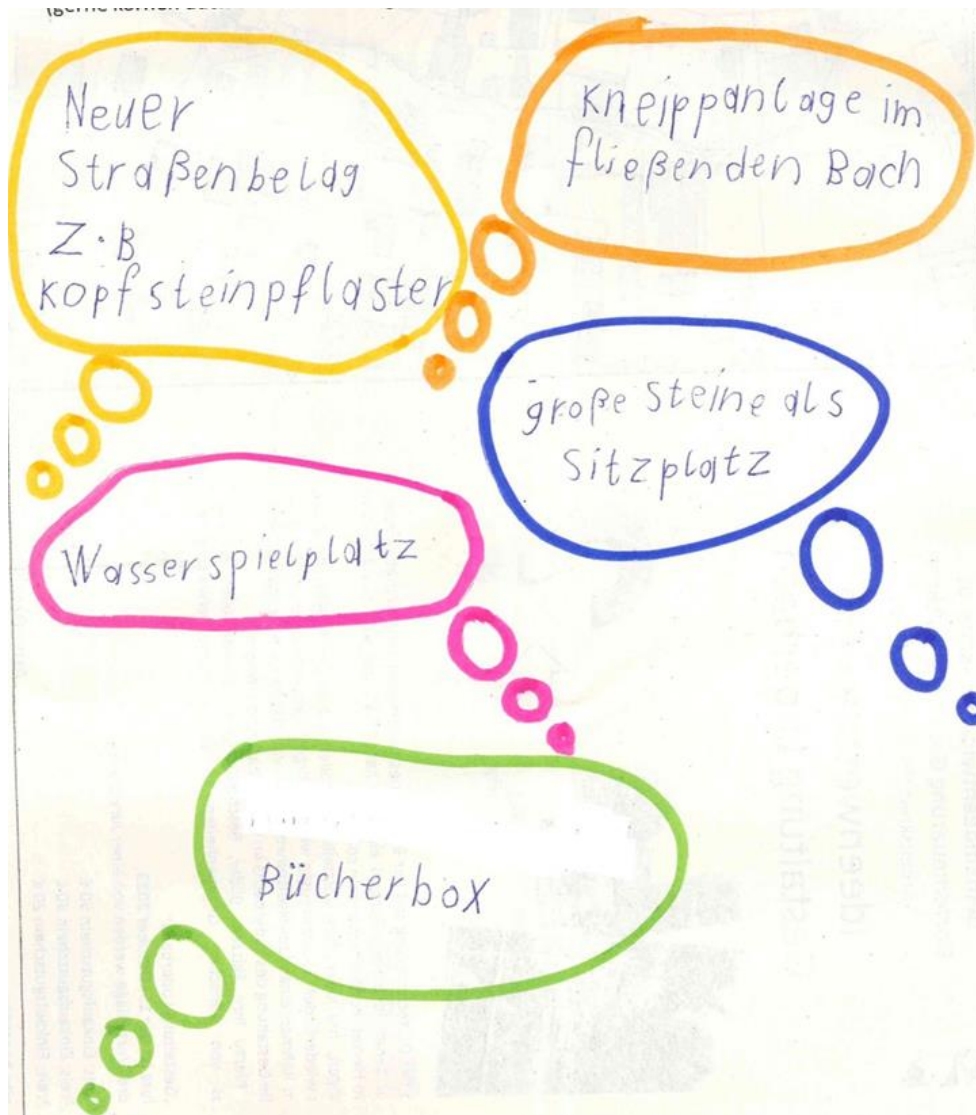 Neuer
Straßenbelag
Z.B
Kopfsteinpflaster
Kneippanlage im
fließenden Bach
große Steine als
Sitzplatz
Wasserspielplatz
Bücherbox